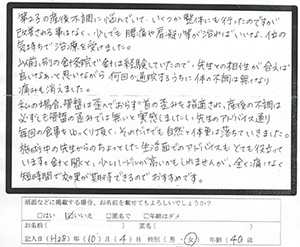 第2子の産後不調に悩んでいて、いくつか整体にも行ったのですが
改善される事はなく、少しでも腰痛や肩凝り等が治ればいいな、位の
気持ちで治療を受けました。
以前、別の鍼灸院で針は経験していたので、先生との相性が合えば
良いなあ〜と思いながら何回か通院するうちに体の不調は無くなり
痛みも消えました。
私の場合、骨盤は歪んでおらず首の歪みを指摘され、産後の不調は
必ずしも骨盤の歪みでは無いと実感しました。先生のアドバイス通り
毎回の食事を出来るだけ抜く、それだけでも自然と体重は落ちていきました。
施術中の先生からのちょっとした生活面でのアドバイスもとても役立って
います。針と聞くと、少しハードルが高いかもしれませんが、全く痛くなく
短時間で効果が期待できるのでおすすめです。
紙面などに掲載する場合、お名前を載せてもよろしいでしょうか？
□はい ☑いいえ □匿名で □年齢はダメ
お名前( ) 匿名( )
記入日(H28)年(10)月(4)日 性別(男・女) 年齢(40)歳